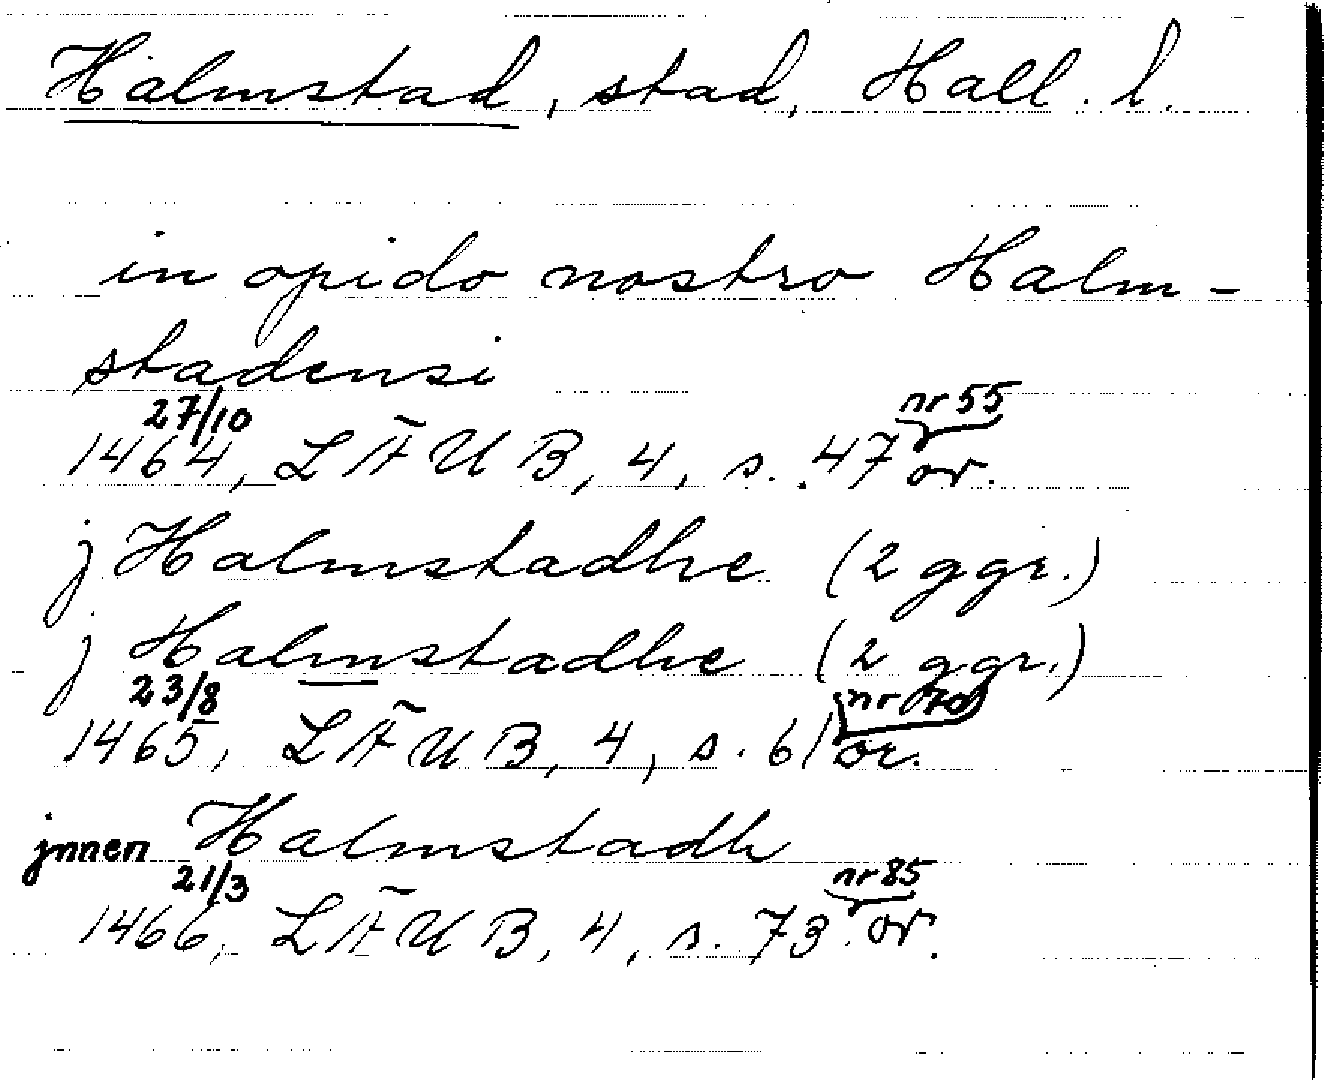 Halmstad, stad, Hall. l.
in opido nostro Halm-
stadensi
27/10 nr 55
1464, LÄUB, 4, s. 47 or.
j Halmstadhe (2 ggr.)
j Halmstadhe (2 ggr.)
23/8 nr 70
1465, LÄUB, 4, s. 61 or.
jnnen Halmstadh
21/3 nr 85
1466, LÄUB, 4, s. 73. or.